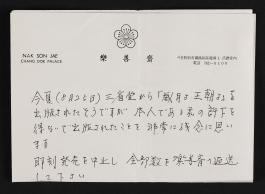 NAK SON JAE
CHANG DOK PALACE
樂善齋
今夏(8月25日)三省堂から「歳月よ王朝よ」を
出版されたそうですが 本人である私の許下を
得ないで出版されたことを 非常に残念に思い
ます
即刻 発売を中止し 全部数を樂善斎へ返送
して下さい